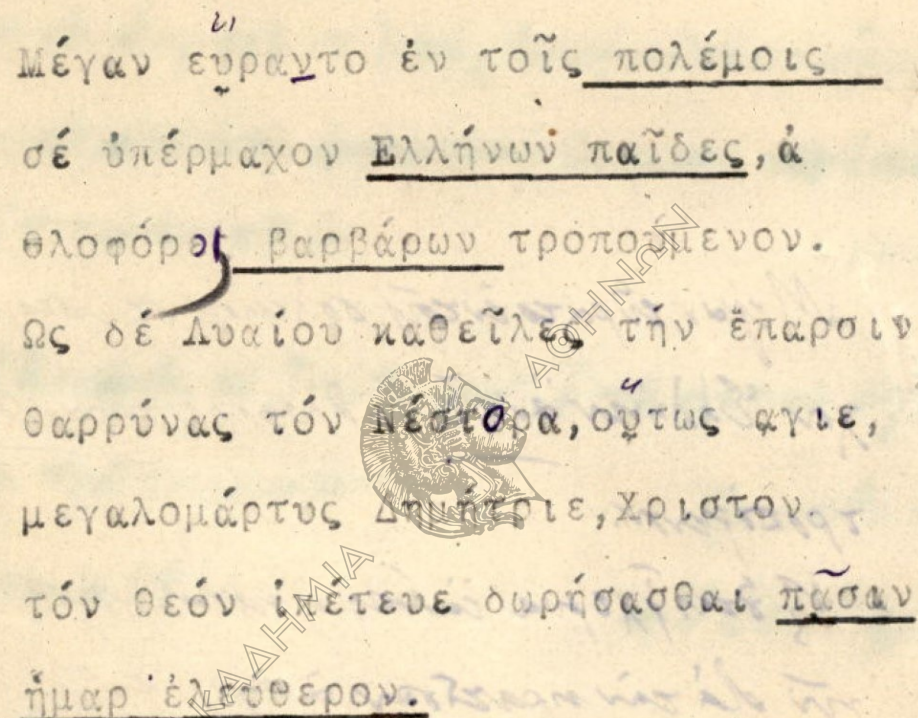 Μέγαν εὕραντο ἐν τοῖς πολέμοις
σέ ὑπέρμαχον Ελλήνων παῖδες, ἀ
θλοφόρε βαρβάρων τροπούμενον.
Ως δέ Λυαίου καθεῖλες τήν ἔπαρσιν
θαρρύνας τόν Νέστορα, οὕτως αγιε,
μεγαλομάρτυς Δημήτριε, Χριστόν
τόν θεόν ἱκέτευε δωρήσασθαι πᾶσαν
ἦμαρ ἐλεύθερον.
ΑΚΑΔΗΜΙΑ
ΑΘΗΝΩΝ